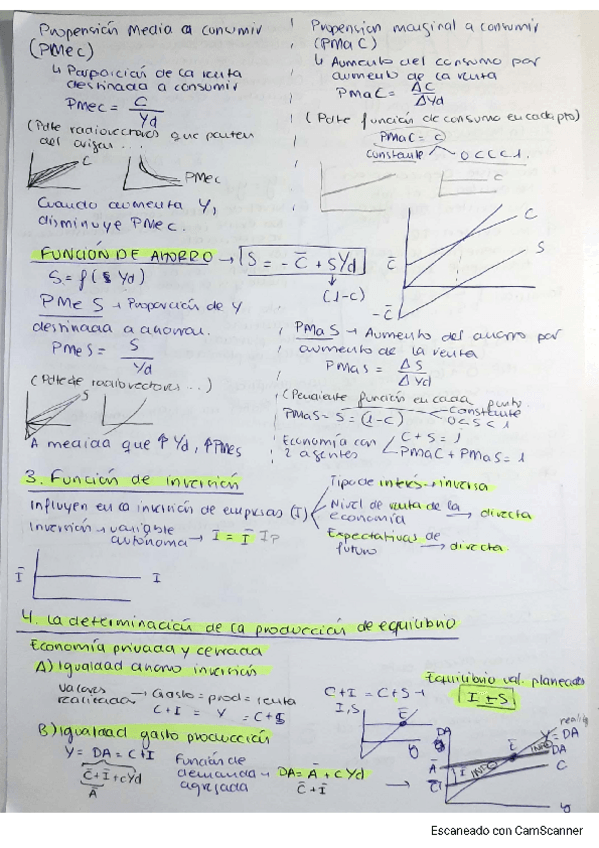 Propensión Media a consumir
(PMec)
↳ Proporción de la renta
destinada a consumir
PMec = C / Yd
(Pdte radiovectores que parten
del origen...
C
PMec
Cuando aumenta Y,
disminuye PMec.
Propensión marginal a consumir
(PMaC)
↳ Aumento del consumo por
aumento de la renta
PMaC = ΔC / ΔYd
(Pdte función de consumo en cada pto)
PMaC = c
constante
0<c<1.
C
S
C̄
-C̄
FUNCIÓN DE AHORRO → S = -C̄ + sYd
(1-c)
S = f(Yd)
PMe S → Proporción de Y
destinada a ahorrar.
PMeS = S / Yd
(Pdte de radiovectores...)
S
A medida que ↑Yd, ↑PMes
PMaS → Aumento del ahorro por
aumento de la renta
PMaS = ΔS / ΔYd
(Pendiente función en cada punto.
PMaS = S = (1-c)
constante
0<s<1
Economía con
2 agentes
C+S=1
PMaC + PMaS = 1
3. Función de inversión
Influyen en la inversión de empresas (I)
Tipo de interés → inversa
Nivel de renta de la
economía → directa
Expectativas de
futuro → directa.
Inversión → variable
autónoma → I = Ī I?
Ī I
4. La determinación de la producción de equilibrio
Economía privada y cerrada
A) Igualdad ahorro inversión
Valores
realizados → Gasto = prod = renta
C+I = Y = C+S
C+I = C+S →
Equilibrio val. planeados
I = S
I, S
E
B) Igualdad gasto producción
Y = DA = C+I
C̄+Ī+cYd
Ā
Función de
demanda →
agregada
DA = Ā + cYd
C̄+Ī
→
DA
Y=DA
DA
C
E
Ā
C̄
I
Y
Escaneado con CamScanner